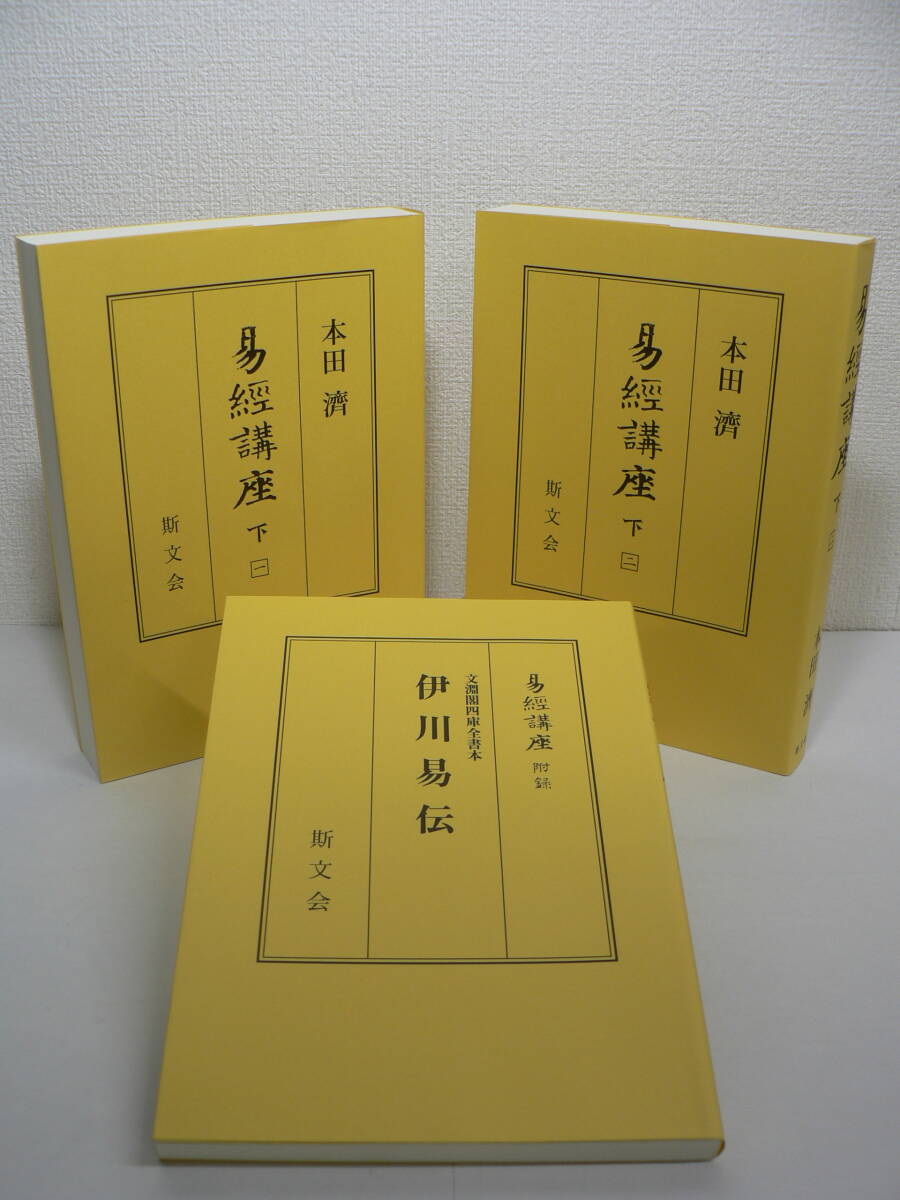 本田 濟
易經講座 下 一
斯文会
本田 濟
易經講座 下 二
斯文会
易經講座 下 二
本田 濟
易經講座 附録
文淵閣四庫全書本
伊川易伝
斯文会